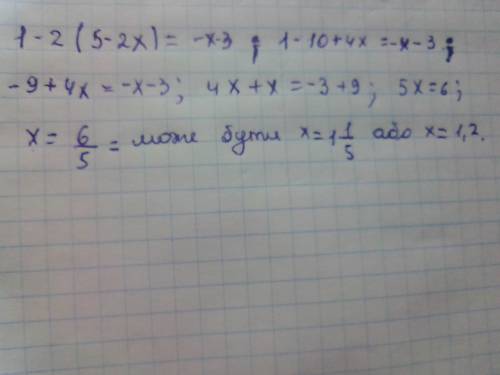 1-2(5-2x)= -x-3 ; 1-10+4x=-x-3;
-9+4x=-x-3; 4x+x=-3+9; 5x=6;
x= 6/5 = може бути x=1 1/5 або x=1,2.